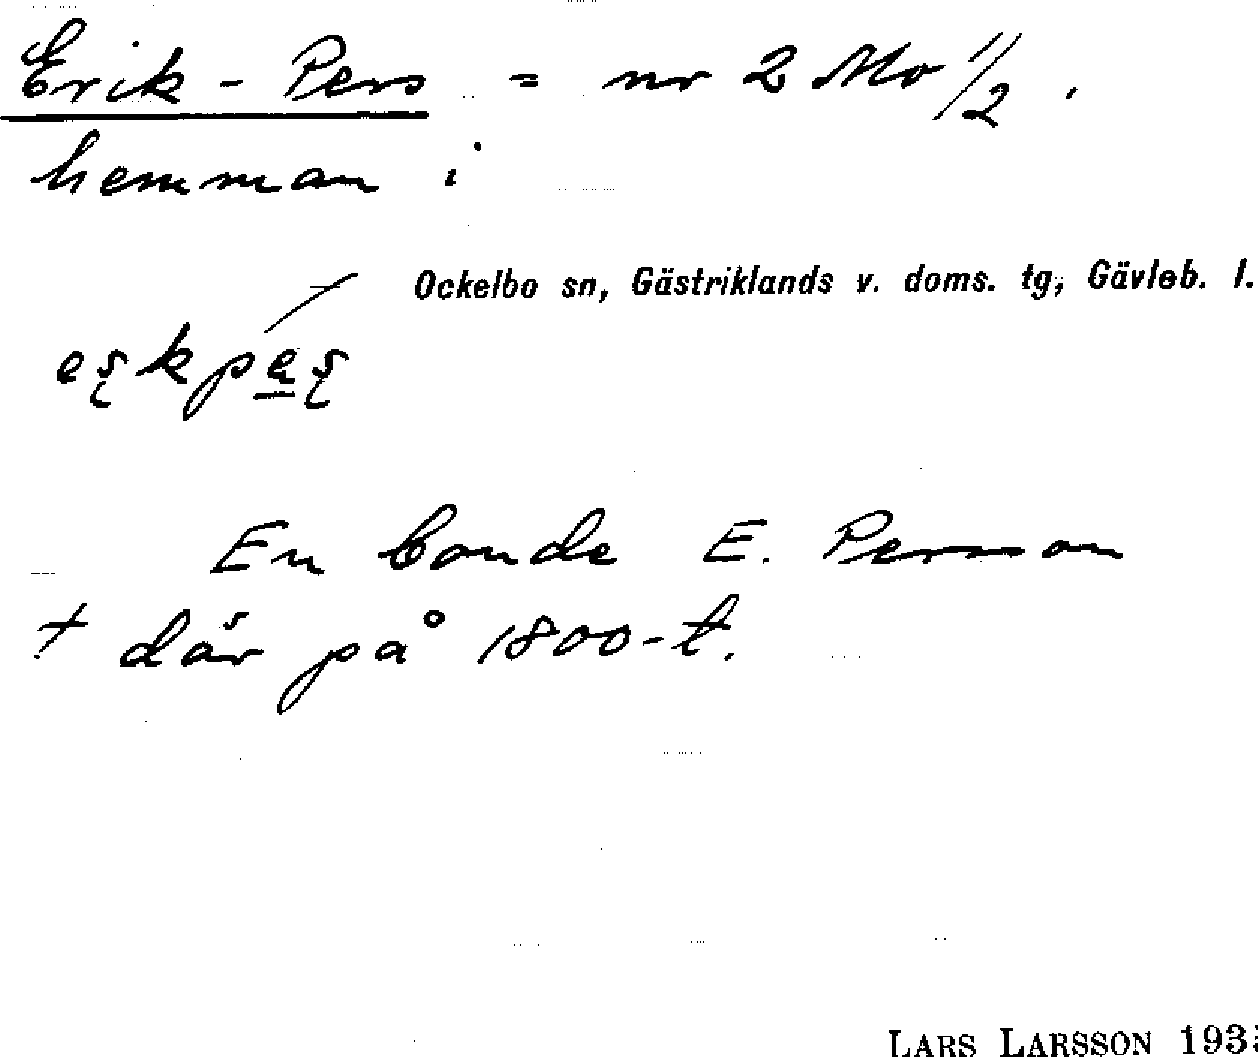 Erik-Pers = nr 2 Mo 1/2
hemman i
Ockelbo sn, Gästriklands v. doms. tg, Gävleb. l.
En bonde E. Persson
† där på 1800-t.
LARS LARSSON 193